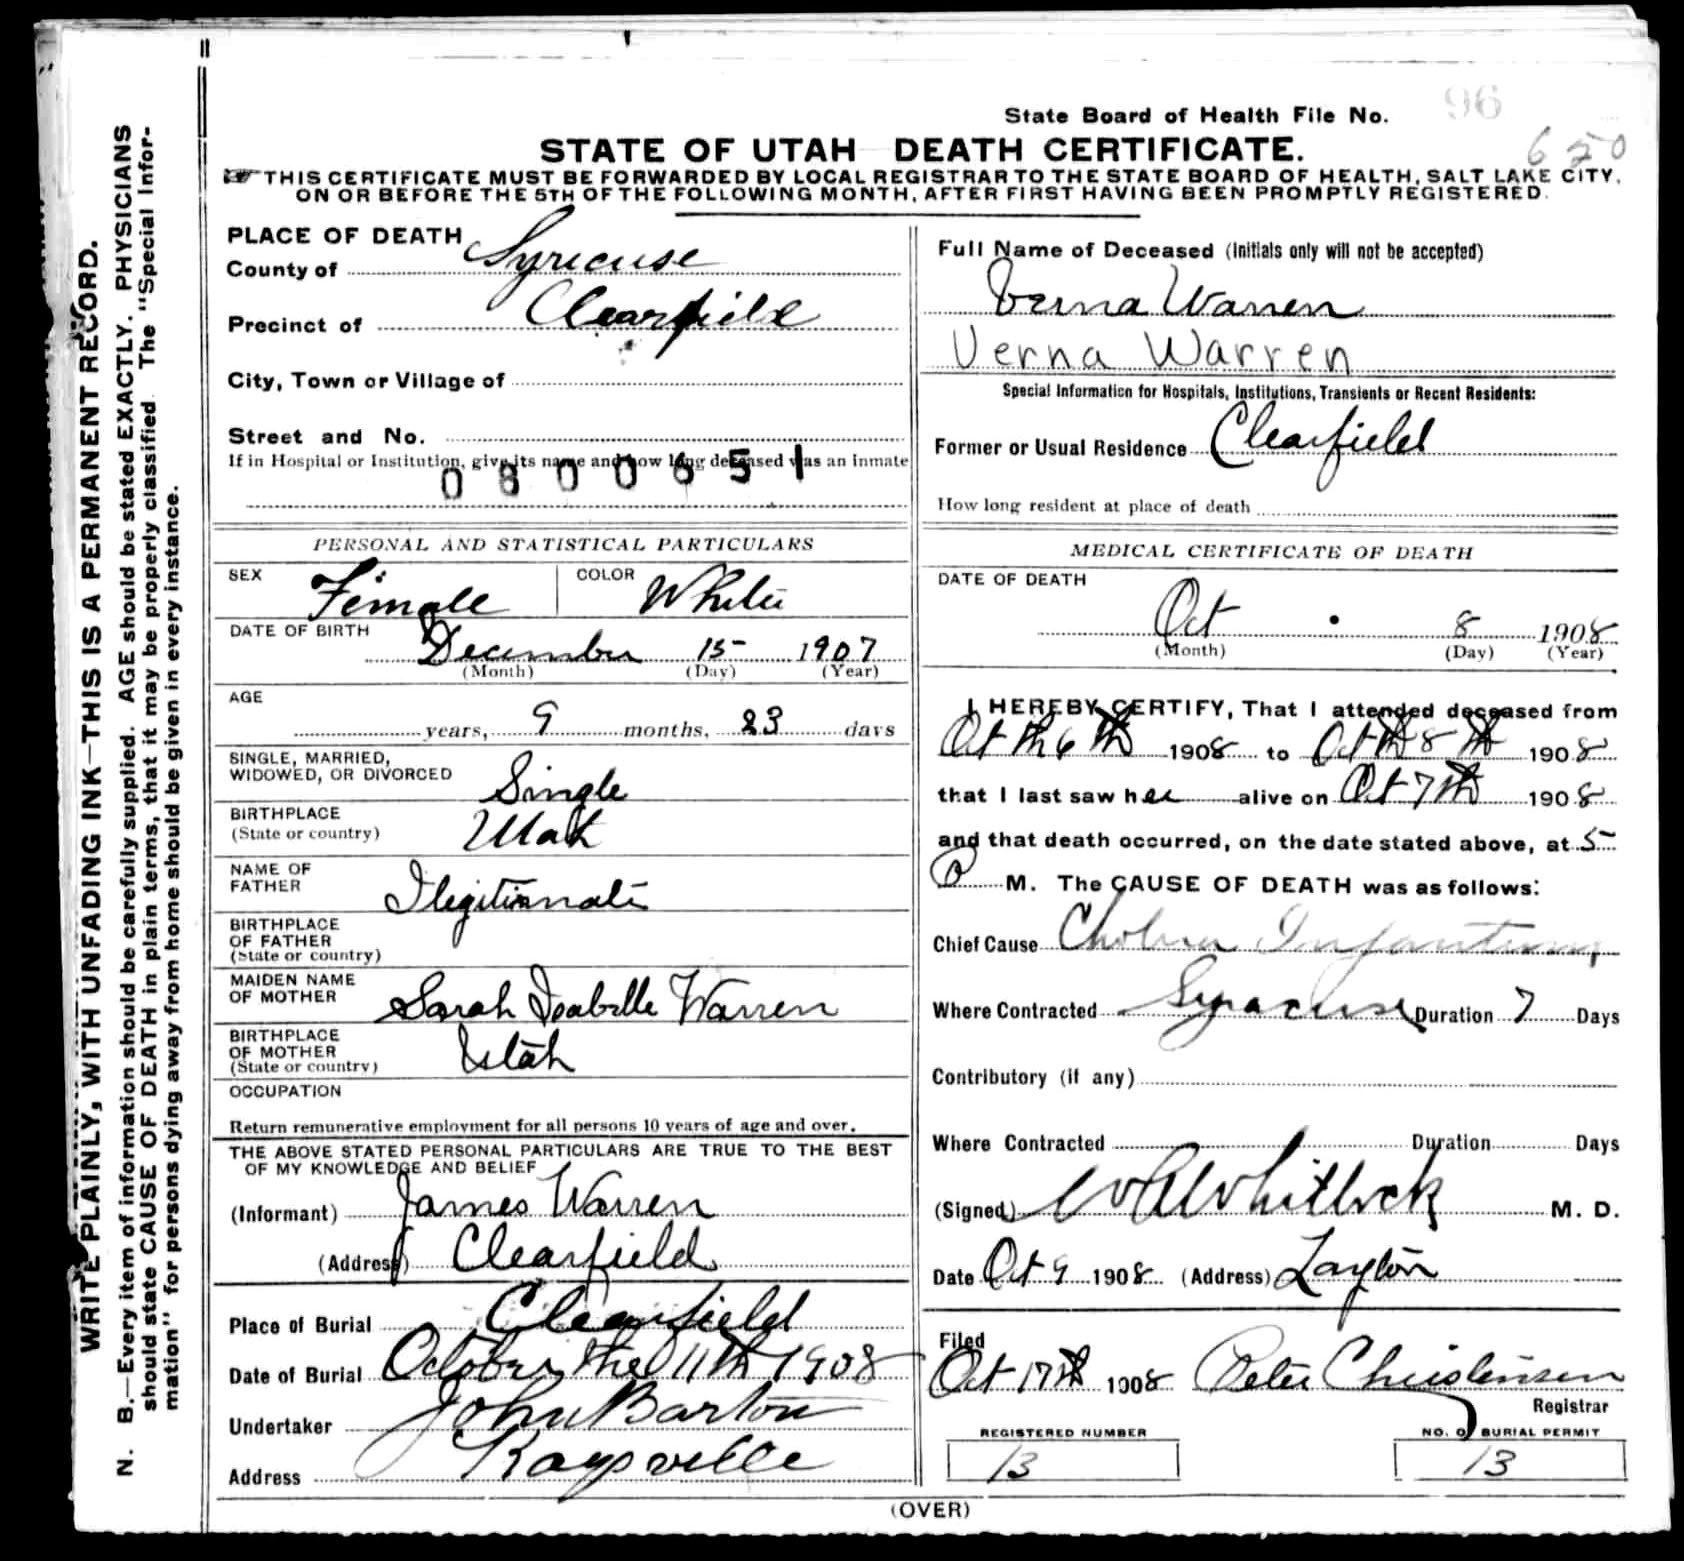 WRITE PLAINLY, WITH UNFADING INK—THIS IS A PERMANENT RECORD.
N. B.—Every item of information should be carefully supplied. AGE should be stated EXACTLY. PHYSICIANS
should state CAUSE OF DEATH in plain terms, that it may be properly classified. The "Special Infor-
mation" for persons dying away from home should be given in every instance.
State Board of Health File No. 96
650
STATE OF UTAH DEATH CERTIFICATE.
THIS CERTIFICATE MUST BE FORWARDED BY LOCAL REGISTRAR TO THE STATE BOARD OF HEALTH, SALT LAKE CITY,
ON OR BEFORE THE 5TH OF THE FOLLOWING MONTH, AFTER FIRST HAVING BEEN PROMPTLY REGISTERED.
PLACE OF DEATH
County of Syricuse
Precinct of Clearfield
City, Town or Village of
Street and No.
If in Hospital or Institution, give its name and how long deceased was an inmate
0800651
PERSONAL AND STATISTICAL PARTICULARS
SEX Female COLOR White
DATE OF BIRTH
December 15 1907
(Month) (Day) (Year)
AGE
years, 9 months, 23 days
SINGLE, MARRIED,
WIDOWED, OR DIVORCED Single
BIRTHPLACE
(State or country) Utah
NAME OF
FATHER Ilegitimate
BIRTHPLACE
OF FATHER
(State or country)
MAIDEN NAME
OF MOTHER Sarah Isabelle Warren
BIRTHPLACE
OF MOTHER
(State or country) Utah
OCCUPATION
Return remunerative employment for all persons 10 years of age and over.
THE ABOVE STATED PERSONAL PARTICULARS ARE TRUE TO THE BEST
OF MY KNOWLEDGE AND BELIEF
(Informant) James Warren
(Address) Clearfield
Place of Burial Clearfield
Date of Burial October the 11th 1908
Undertaker John Barton
Address Kaysville
Full Name of Deceased (Initials only will not be accepted)
Verna Warren
Verna Warren
Special Information for Hospitals, Institutions, Transients or Recent Residents:
Former or Usual Residence Clearfield
How long resident at place of death
MEDICAL CERTIFICATE OF DEATH
DATE OF DEATH
Oct 8 1908
(Month) (Day) (Year)
I HEREBY CERTIFY, That I attended deceased from
Oct 6 th 1908 to Oct 8 th 1908
that I last saw her alive on Oct 7th 1908
and that death occurred, on the date stated above, at 5
M. The CAUSE OF DEATH was as follows:
Chief Cause Cholera Infantum
Where Contracted Syracuse Duration 7 Days
Contributory (if any)
Where Contracted Duration Days
(Signed) Whitlock M. D.
Date Oct 9 1908 (Address) Layton
Filed
Oct 17th 1908 Peter Christensen
Registrar
REGISTERED NUMBER NO. OF BURIAL PERMIT
13 13
(OVER)